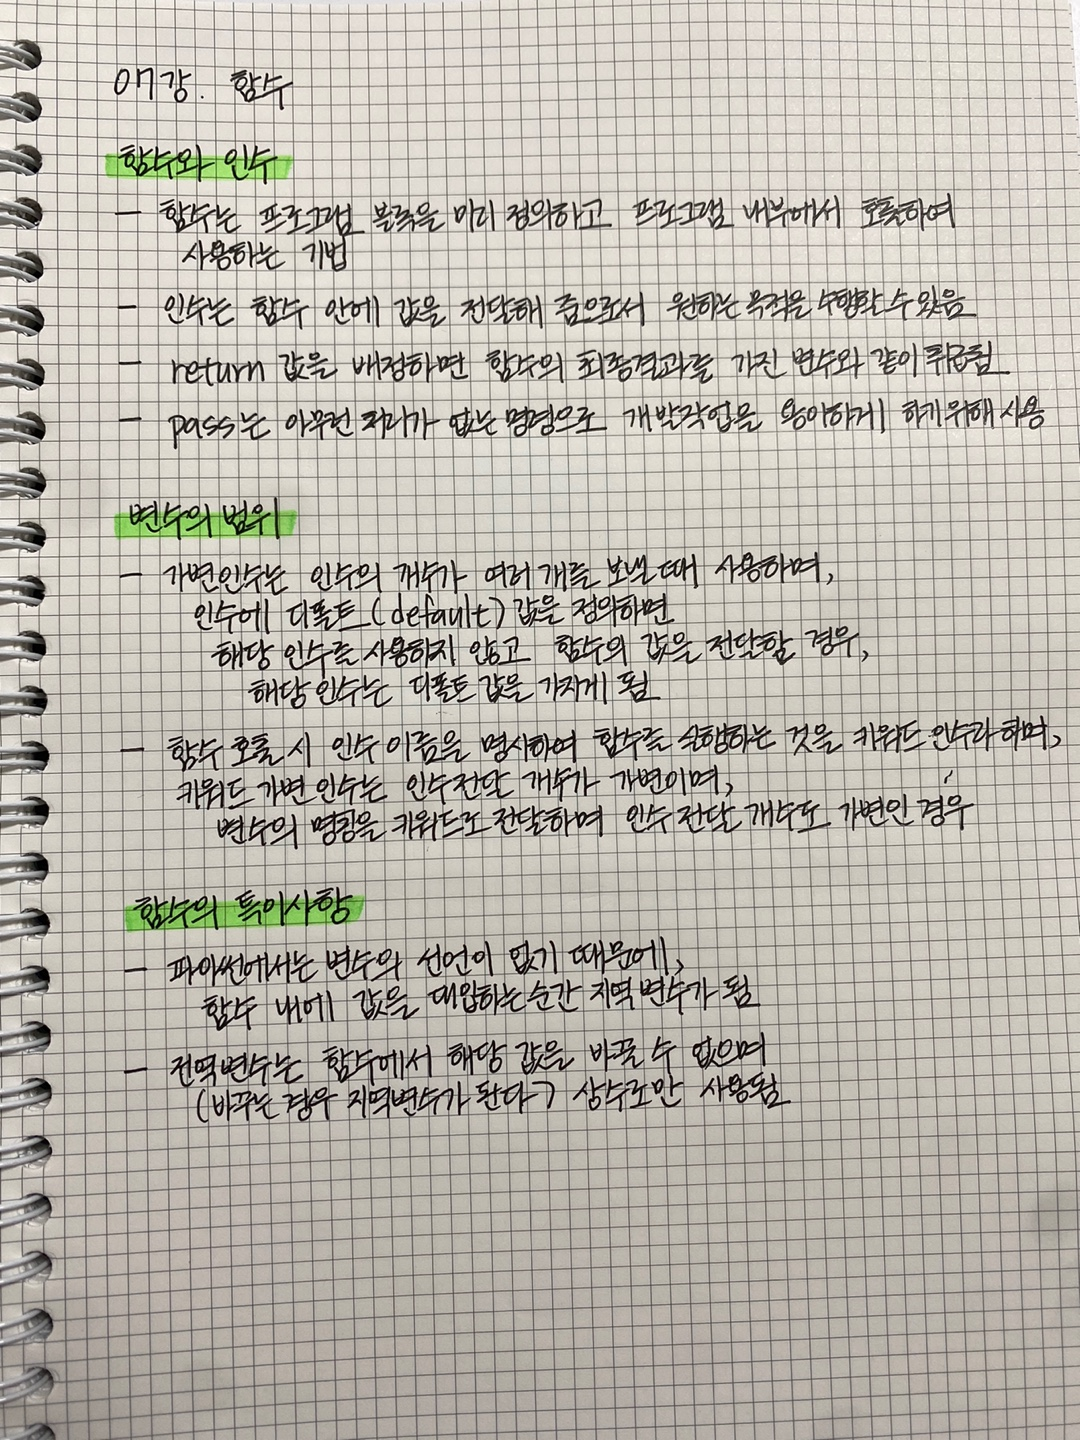 07강. 함수
함수와 인수
- 함수는 프로그램 블록을 미리 정의하고 프로그램 내부에서 호출하여
사용하는 기법
- 인수는 함수 안에 값을 전달해 줌으로서 원하는 목적을 수행할 수 있음
- return 값을 배정하면 함수의 최종결과를 가진 변수와 같이 취급됨
- pass는 아무런 처리가 없는 명령으로 개발작업을 용이하게 하기 위해 사용
변수의 범위
- 가변인수는 인수의 개수가 여러 개를 보낼 때 사용하며,
인수에 디폴트(default) 값을 정의하면
해당 인수를 사용하지 않고 함수의 값을 전달할 경우,
해당 인수는 디폴트 값을 가지게 됨
- 함수 호출 시 인수 이름을 명시하여 함수를 실행하는 것을 키워드 인수라 하며,
키워드 가변 인수는 인수 전달 개수가 가변이며,
변수의 명칭을 키워드로 전달하며 인수 전달 개수도 가변인 경우
함수의 특이사항
- 파이썬에서는 변수의 선언이 없기 때문에,
함수 내에 값을 대입하는 순간 지역 변수가 됨
- 전역변수는 함수에서 해당 값을 바꿀 수 없으며
(바꾸는 경우 지역변수가 된다) 상수로만 사용됨